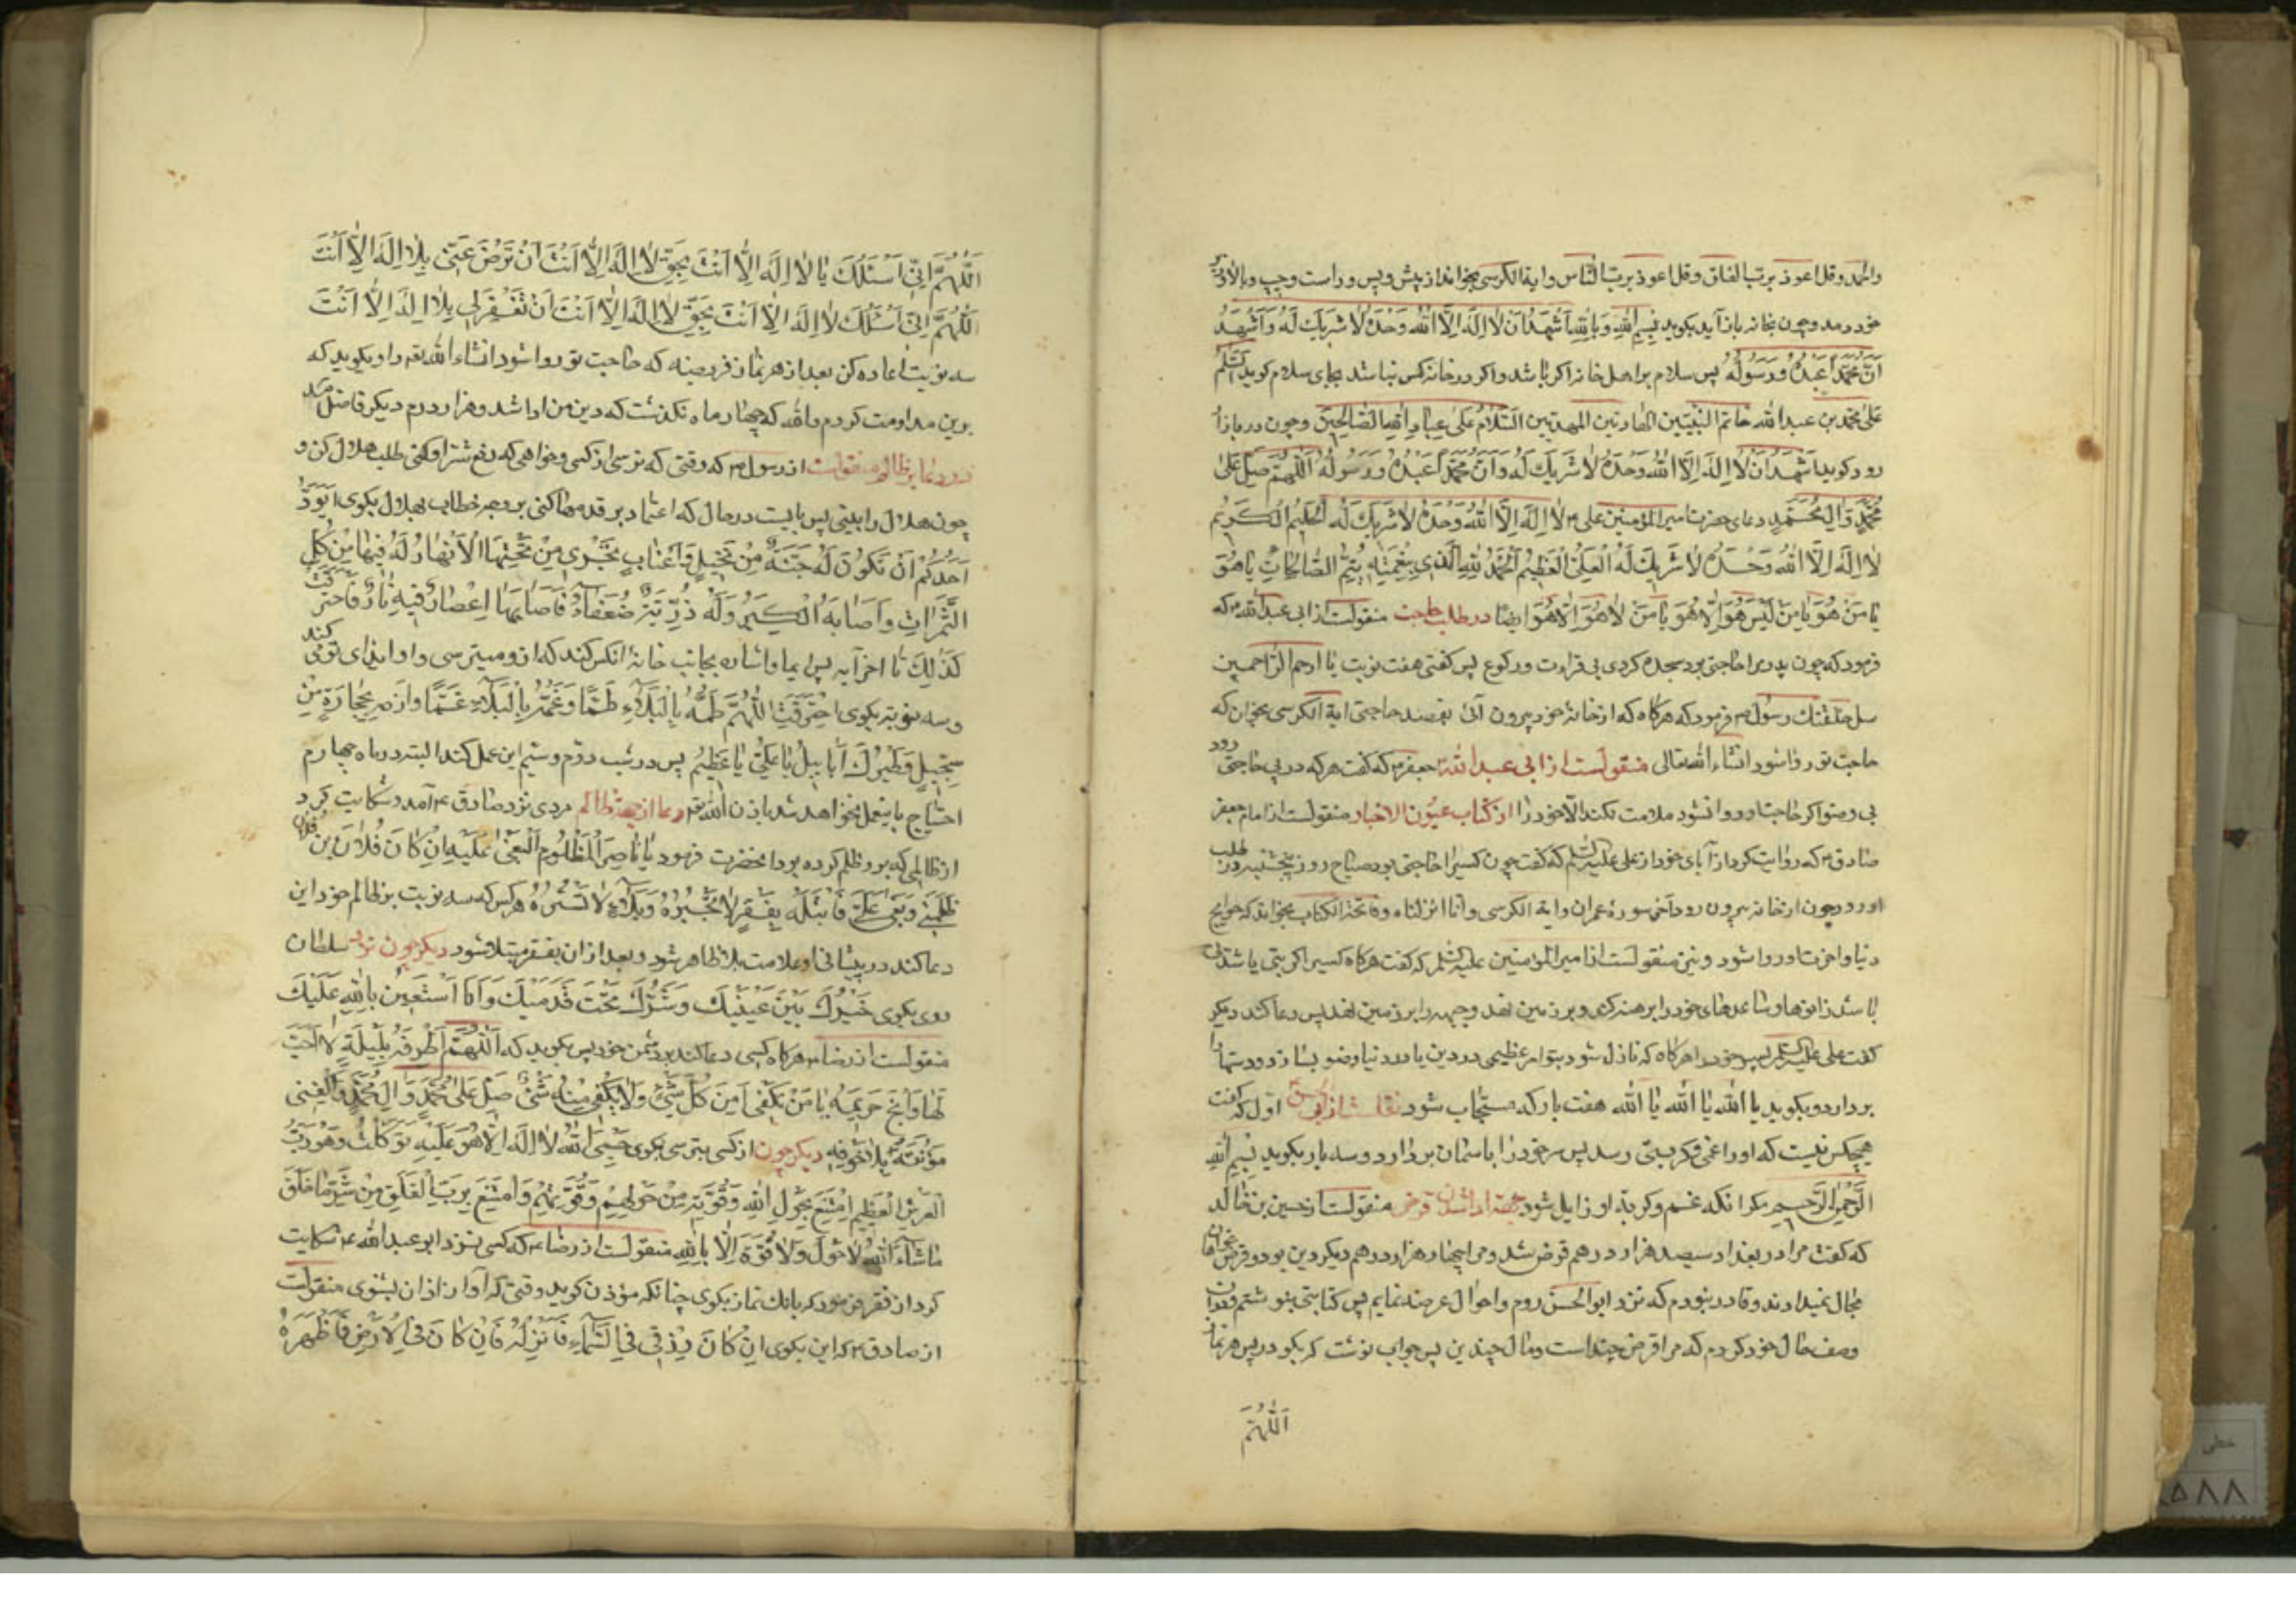 والحمد وقل اعوذ برب الفلق وقل اعوذ برب الناس واية الكرسى بخواند از پيش و پس و راست و چپ و بالا و زير
خود دمد و چون بخانه باز آيد بكويد بِسْمِ اللهِ وَبِاللهِ اَشْهَدُ اَنْ لَا اِلَهَ اِلَّا اللهُ وَحْدَهُ لَا شَرِيكَ لَهُ وَاَشْهَدُ
اَنَّ مُحَمَّداً عَبْدُهُ وَرَسُولُهُ پس سلام بر اهل خانه اكر باشد و اكر در خانه كس نباشد بجاى سلام كويد السَّلَامُ
عَلى محمد بن عبدالله خاتم النَّبِيّين الهادين المهديين السَّلَامُ عَلى عِبَادِ اللهِ الصَّالِحِينَ و چون در بازار
رود كويد اَشْهَدُ اَنْ لَا اِلَهَ اِلَّا اللهُ وَحْدَهُ لَا شَرِيكَ لَهُ وَاَنَّ مُحَمَّداً عَبْدُهُ وَرَسُولُهُ اَللّهُمَّ صَلِّ عَلى
مُحَمَّدٍ وَالِ مُحَمَّدٍ دعاى حضرت امير المؤمنين على م لَا اِلَهَ اِلَّا اللهُ وَحْدَهُ لَا شَرِيكَ لَهُ الْحَلِيمُ الْكَرِيمُ
لَا اِلَهَ اِلَّا اللهُ وَحْدَهُ لَا شَرِيكَ لَهُ الْعَلِىُّ الْعَظِيمُ اَلْحَمْدُ للهِ الَّذِى بِنِعْمَتِهِ يُتِمُّ الصَّالِحَاتِ يَا هُوَ
يَا مَنْ هُوَ يَا مَنْ لَيْسَ هُوَ اِلَّا هُوَ يَا مَنْ لَا هُوَ اِلَّا هُوَ ايضا در طلب حاجت منقولست از ابى عبدالله م كه
فرمود كه چون پدرم را حاجتى بود سجده كردى بى قراءت و ركوع پس كفتى هفت نوبت يَا ارحم الراحمين
سل حاجتك رسول م فرمود كه هركاه كه از خانهٔ خود بيرون آئى بقصد حاجتى اية الكرسى بخوان كه
حاجت تو روا شود انشاء الله تعالى منقولست از ابى عبدالله جعفر م كه كفت هركه در پى حاجتى رود
بى وضو اكر حاجت او روا نشود ملامت نكند الا خود را از كتاب عيون الاخبار منقولست از امام جعفر
صادق م كه روايت كرد از آباى خود از على عليه السلام كه كفت چون كسيرا حاجتى بود صباح روز پنجشنبه در طلب
او رود چون از خانه بيرون رود آخر سورهٔ عمران واية الكرسى وانا انزلناه وفاتحة الكتاب بخواند كه حوايج
دنيا و اخرت او روا شود و نيز منقولست از امير المؤمنين عليه السلم كه كفت هركاه كسيرا كربتى باشد
بايد زانوها و ساعدهاى خود را برهنه كردى و بر زمين نهد و جبهه را بر زمين نهد پس دعا كند ديكر
كفت على عليه السلم پسر خود را هركاه كه نازل شود بتو امر عظيمى در دين يا در دنيا وضو بساز و دستها را
بردار و بكويد يا الله يا الله يا الله هفت بار كه مستجاب شود نقلست از كه اول كفت
هيچكس نيست كه او را غمى و كربتى رسد پس سر خود را باسمان بردارد و سه بار بكويد بِسْمِ اللهِ
الرَّحْمنِ الرَّحِيمِ مكر انكه غم و كربت او زايل شود جهت اداشدن قرض منقولست از حسين بن خالد
كه كفت مرا در بغداد سيصد هزار درهم قرض شد و مرا چهار هزار درهم ديكر دين بود و قرض خواهان
مجال نميدادند و قادر نبودم كه نزد ابو الحسن روم و احوال عرضه نمايم پس كتابتى بنوشتم و بدان
وصف حال خود كردم كه مرا قرض چند است و مال چندين پس جواب نوشت كه بكو در پس هر نماز
اَللّهُمَّ
اَللّهُمَّ اِنّى اَسْئَلُكَ يَا لَا اِلَهَ اِلَّا اَنْتَ بِحَقِّ لَا اِلَهَ اِلَّا اَنْتَ اَنْ تَرْضَ عَنّى بِلَا اِلَهَ اِلَّا اَنْتَ
اَللّهُمَّ اِنّى اَسْئَلُكَ لَا اِلَهَ اِلَّا اَنْتَ بِحَقِّ لَا اِلَهَ اِلَّا اَنْتَ اَنْ تَغْفِرَلِى بِلَا اِلَهَ اِلَّا اَنْتَ
سه نوبت اعاده كن بعد از هر نماز فريضه كه حاجت تو روا شود انشاء الله تعه راوى كويد كه
برين مداومت كردم والله كه چهار ماه نكذشت كه دين من ادا شد و هزار درم ديكر فاضل آمد
در دعا بر ظالم منقولست از رسول م كه وقتى كه ترسى از كسى و خواهى كه دفع شر او كنى طلب هلال كن و
چون هلال را ببينى پس بايست در حال كه اعتماد بر قدمها كنى بر وجه خطاب بهلال بكوى اَيَوَدُّ
اَحَدُكُمْ اَنْ تَكُونَ لَهُ جَنَّةٌ مِنْ نَخِيلٍ وَاَعْنَابٍ تَجْرِى مِنْ تَحْتِهَا الْاَنْهَارُ لَهُ فِيهَا مِنْ كُلِّ
الثَّمَرَاتِ وَاَصَابَهُ الْكِبَرُ وَلَهُ ذُرِّيَّةٌ ضُعَفَاءُ فَاَصَابَهَا اِعْصَارٌ فِيهِ نَارٌ فَاحْتَرَقَتْ
كَذلِكَ تا اخر آيه پس ايما و اشاره بجانب خانهٔ انكس كند كه از و ميترسى و او ايذاى تو مى كند
و سه نوبت بكوى اِحْتَرَقَتْ اَللّهُمَّ طُمَّهُ بِالْبَلَاءِ طَمًّا وَغُمَّهُ بِالْبَلَاءِ غَمًّا وَارْمِهِ بِحِجَارَةٍ مِنْ
سِجِّيلٍ وَطَيْرِكَ اَبَابِيلَ يَا عَلِىُّ يَا عَظِيمُ پس در شب دوم و سيم اين عمل كند البته در ماه چهارم
احتياج باين عمل نخواهد شد باذن الله تعه دعا از جهة ظالم مردى نزد صادق ع آمد و شكايت كرد
از ظالمى كه برو ظلم كرده بود انحضرت فرمود يَا نَاصِرَ الْمَظْلُومِ الْمَبْغِىِّ عَلَيْهِ اِنْ كَانَ فُلَانَ بن فُلَان
ظَلَمَنِى وَبَغى عَلَىَّ فَابْتَلِهِ بِفَقْرٍ لَا تَجْبُرُهُ وَبَلَاءٍ لَا تَسْتُرُهُ هركس كه سه نوبت بر ظالم خود اين
دعا كند در پيشانى او علامت بلا ظاهر شود و بعد از ان بفقر مبتلا شود ديكر چون نزد سلطان
روى بكوى خَيْرُكَ بَيْنَ عَيْنَيْكَ وَشَرُّكَ تَحْتَ قَدَمَيْكَ وَاَنَا اَسْتَعِينُ بِاللهِ عَلَيْكَ
منقولست از رضا م هركاه كسى دعا كند بر دشمن خود پس بكويد كه اَللّهُمَّ اَطْرِقْهُ بِلَيْلَةٍ لَا اُخْتَ
لَهَا وَاَبِحْ حَرِيمَهُ يَا مَنْ يَكْفِى مِنْ كُلِّ شَىْءٍ وَلَا يَكْفِى مِنْهُ شَىْءٌ صَلِّ عَلى مُحَمَّدٍ وَالِ مُحَمَّدٍ وَاكْفِنِى
مَؤُنَتَهُ بِلَا مَؤُنَةٍ ديكر چون از كسى بترسى بكوى حَسْبِىَ اللهُ لَا اِلَهَ اِلَّا هُوَ عَلَيْهِ تَوَكَّلْتُ وَهُوَ رَبُّ
الْعَرْشِ الْعَظِيمِ اِمْتَنِعُ بِحَوْلِ اللهِ وَقُوَّتِهِ مِنْ حَوْلِهِمْ وَقُوَّتِهِمْ وَاَمْتَنِعُ بِرَبِّ الْفَلَقِ مِنْ شَرِّ مَا خَلَقَ
مَاشَاءَ اللهُ لَا حَوْلَ وَلَا قُوَّةَ اِلَّا بِاللهِ منقولست از رضا م كه كسى نزد ابو عبدالله ع شكايت
كرد از فقر فرمود كه بانك نماز بكوى چنانكه مؤذن كويد وقتى كه آواز اذان بشنوى منقولست
از صادق م كه اين بكوى اِنْ كَانَ رِزْقِى فِى السَّمَاءِ فَاَنْزِلْهُ فَاِنْ كَانَ فِى الْاَرْضِ فَاَظْهِرْهُ
خطى
۸۵۸۸